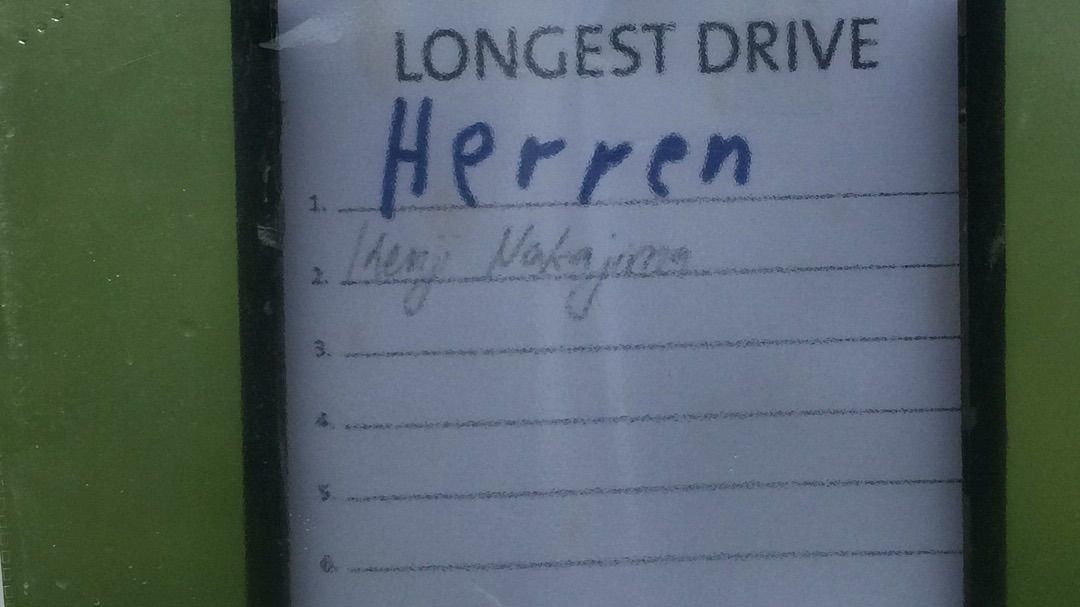 LONGEST DRIVE
Herren
1.
2. Kenji Nakajima
3.
4.
5.
6.